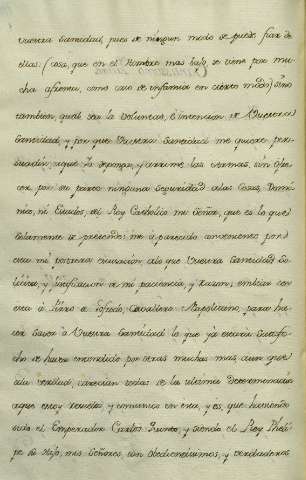 vuestra Santidad, pues de ningun modo se puede fiar de
ellas (cosa, que en el hombre mas bajo se tiene por mu
cha afrenta, como caso de infamia en cierto modo) sino
tambien, qual sea la voluntad, è intencion de Vuestra
Santidad, y por que Vuestra Santidad me quiere per
suadir, a que Yo deponga, y arrime las armas, sin ofre
cer por su parte ninguna seguridad a las Cosas, Domi
nios, ni Estados, del Rey Catholico mi Señor, que es lo que
solamente se pretende: me à parecido
esta mi postrera que Vuestra Santidad
y justificacion de mi paciencia, y razon, embiar con
esta à Pirro de Cavallero Napolitano, para ha
cer saver à Vuestra Santidad lo que ya
cho se haver entendido por otras muchas mas, aun que
ala verdad, carecian todas de la ultima determinacion
a que estoy resuelto, y comunico en esta, y es, que haviendo
sido el Emperador Carlos Quinto, y siendo el Rey Pheli
pe su hijo, mis Señores, tan obedientisimos, y verdaderos